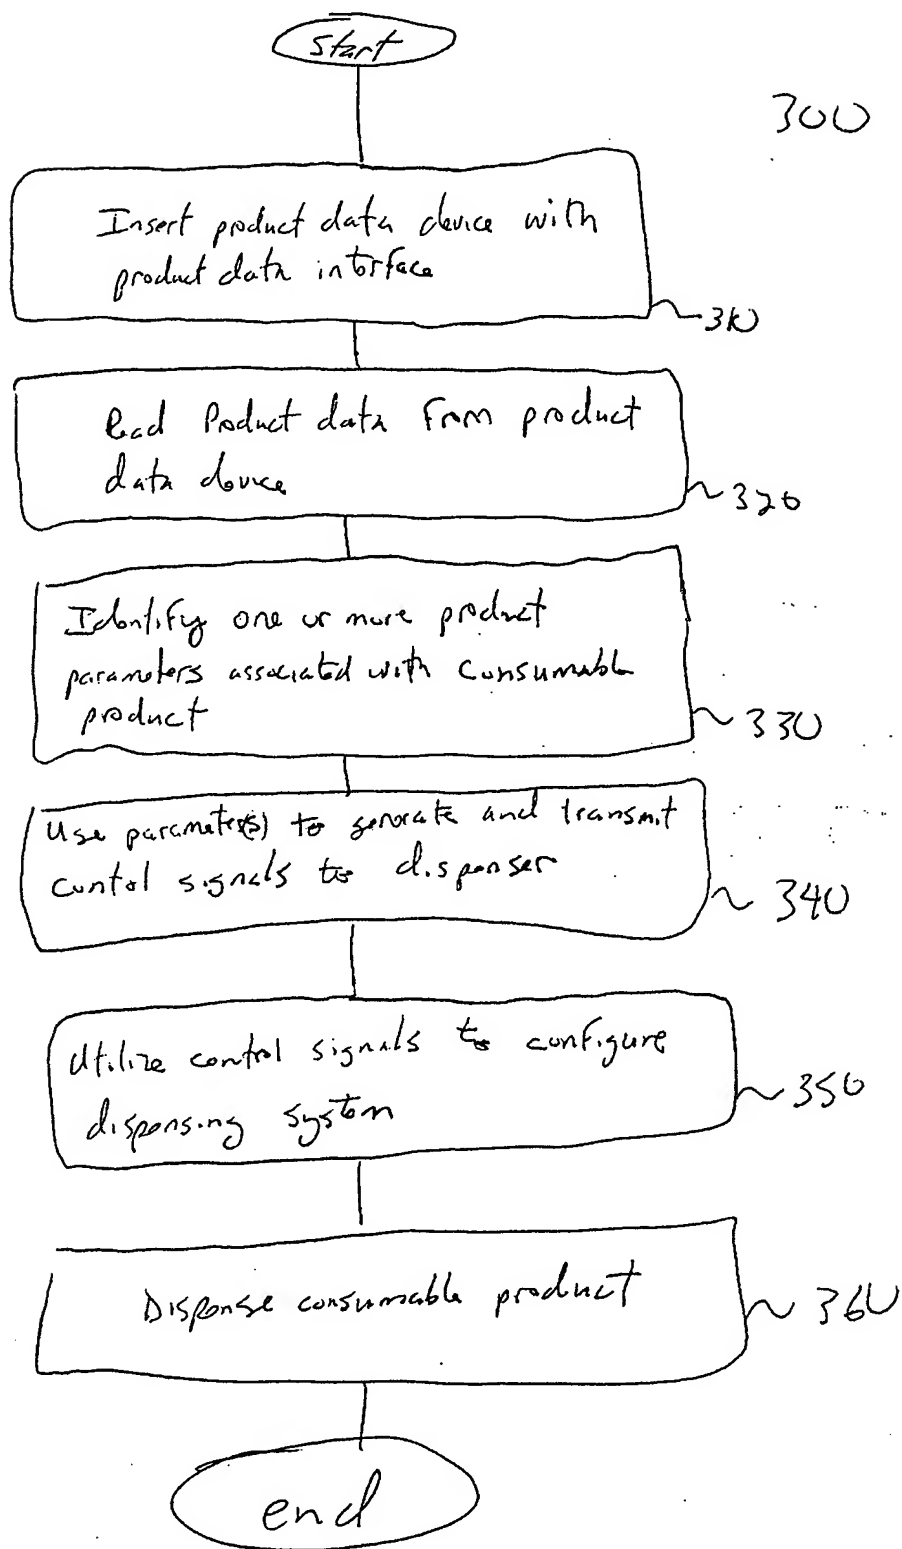 Start
300
Insert product data device with
product data interface
310
Read Product data from product
data device
320
Identify one or more product
parameters associated with consumable
product
330
Use parameter(s) to generate and transmit
control signals to dispenser
340
Utilize control signals to configure
dispensing system
350
Dispense consumable product
360
end